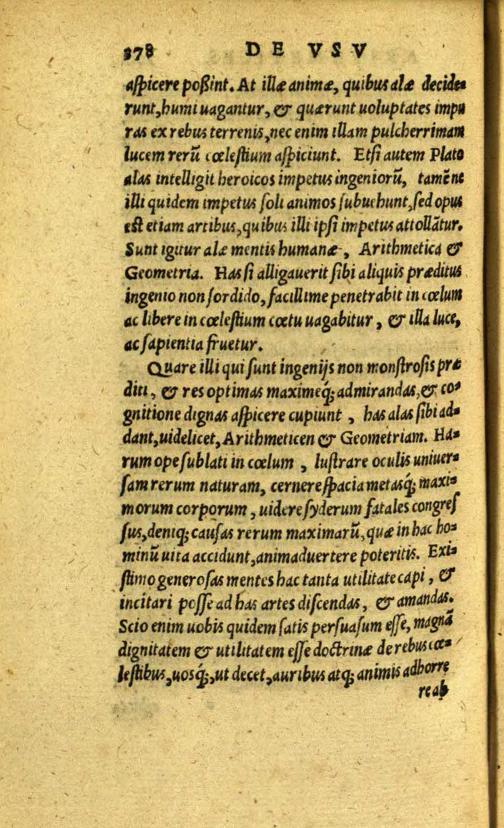 378 DE VSV
aspicere poßint. At illæ animæ, quibus alæ decide=
runt, humi uagantur, & quærunt uoluptates impu
ras ex rebus terrenis, nec enim illam pulcherrimam
lucem rerū cœlestium aspiciunt. Etsi autem Plato
alas intelligit heroicos impetus ingeniorū, tamē ne
illi quidem impetus soli animos subuehunt, sed opus
est etiam artibus, quibus illi ipsi impetus attollātur.
Sunt igitur alæ mentis humanæ, Arithmetica &
Geometria. Has si alligauerit sibi aliquis præditus
ingenio non sordido, facillime penetrabit in cœlum
ac libere in cœlestium cœtu uagabitur, & illa luce,
ac sapientia fruetur.
Quare illi qui sunt ingenijs non monstrosis præ
diti, & res optimas maximeq́; admirandas, & co=
gnitione dignas aspicere cupiunt, has alas sibi ad=
dant, uidelicet, Arithmeticen & Geometriam. Ha=
rum ope sublati in cœlum, lustrare oculis uniuer=
sam rerum naturam, cernere spacia metasq́; maxi=
morum corporum, uidere syderum fatales congres
sus, deniq; causas rerum maximarū, quæ in hac ho=
minū uita accidunt, animaduertere poteritis. Exi=
stimo generosas mentes hac tanta utilitate capi, &
incitari posse ad has artes discendas, & amandas.
Scio enim uobis quidem satis persuasum esse, magnā
dignitatem & utilitatem esse doctrinæ de rebus cœ=
lestibus, uosq́;, ut decet, auribus atq; animis adhorre
re ab